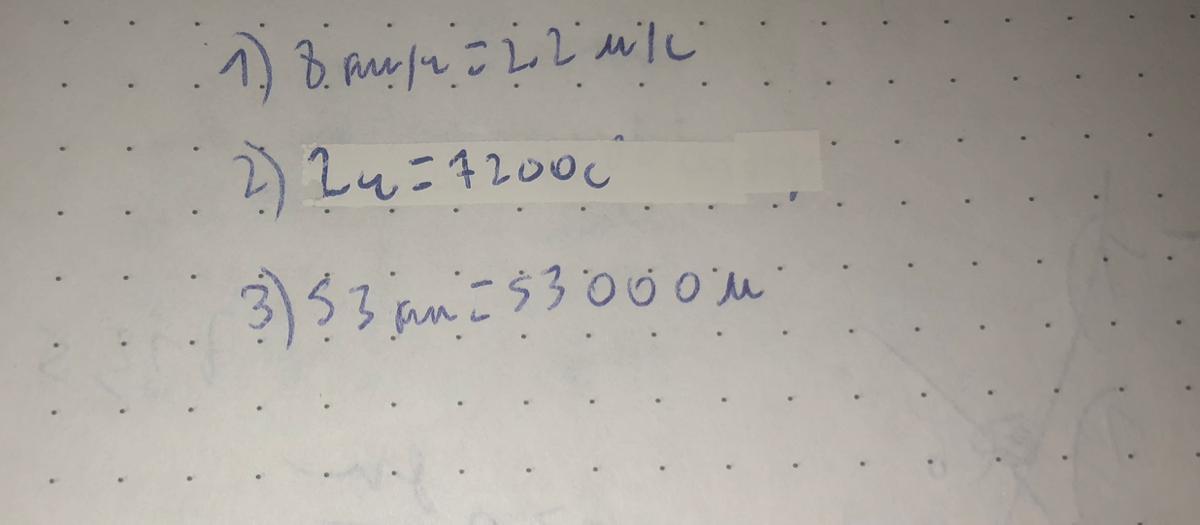 1) 8 км/ч = 2.2 м/с
2) 2ч = 7200с
3) 53 км = 53000 м